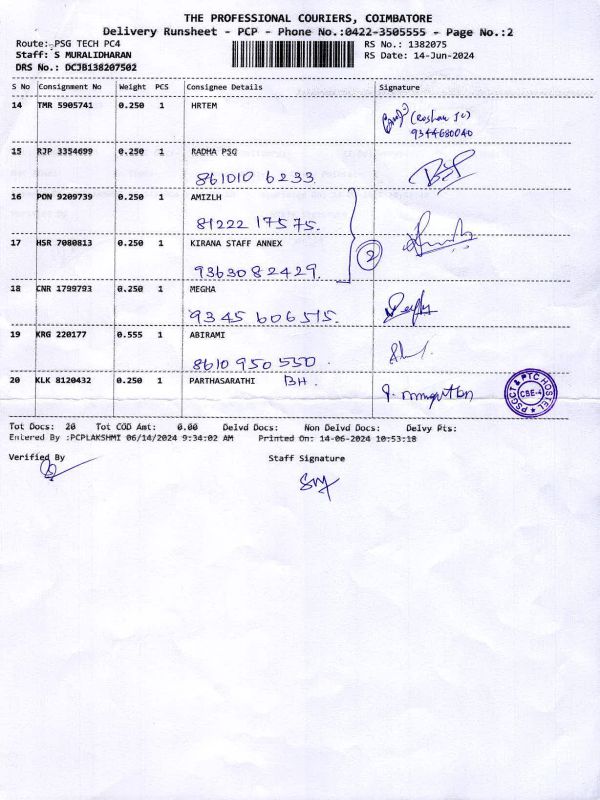 THE PROFESSIONAL COURIERS, COIMBATORE
Delivery Runsheet - PCP - Phone No.:0422-3505555 - Page No.:2
Route: PSG TECH PC4 RS No.: 1382075
Staff: S MURALIDHARAN RS Date: 14-Jun-2024
DRS No.: DCJB138207502
S No Consignment No Weight PCS Consignee Details Signature
14 TMR 5905741 0.250 1 HRTEM
9344680040
15 RJP 3354699 0.250 1 RADHA PSG
861010 6233
16 PDN 9209739 0.250 1 AMIZLH
81222 17575.
17 HSR 7080813 0.250 1 KIRANA STAFF ANNEX
2
9363082429.
18 CNR 1799793 0.250 1 MEGHA
9345 606515.
19 KRG 220177 0.555 1 ABIRAMI
8610 950 550.
20 KLK 8120432 0.250 1 PARTHASARATHI BH.
PSGCT & PTC HOSTEL
CBE-4
Tot Docs: 20 Tot COD Amt: 0.00 Delvd Docs: Non Delvd Docs: Delvy Pts:
Entered By :PCPLAKSHMI 06/14/2024 9:34:02 AM Printed On: 14-06-2024 10:53:18
Verified By Staff Signature